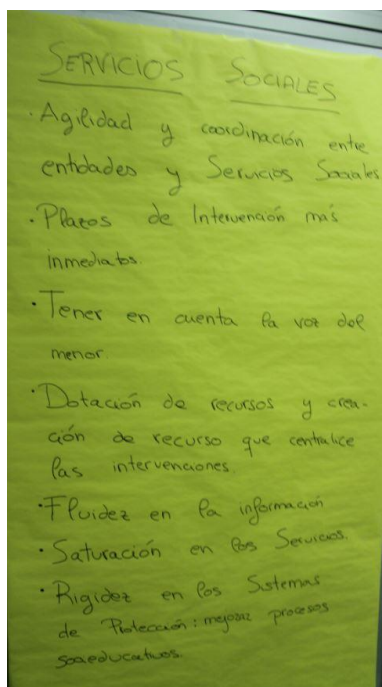 SERVICIOS SOCIALES
· Agilidad y coordinación entre
entidades y Servicios Sociales
· Plazos de Intervención más
inmediatos.
· Tener en cuenta la voz del
menor
· Dotación de recursos y crea-
ción de recurso que centralice
las intervenciones.
· Fluidez en la información
· Saturación en los Servicios.
· Rigidez en los Sistemas
de Protección: mejorar procesos
socioeducativos.